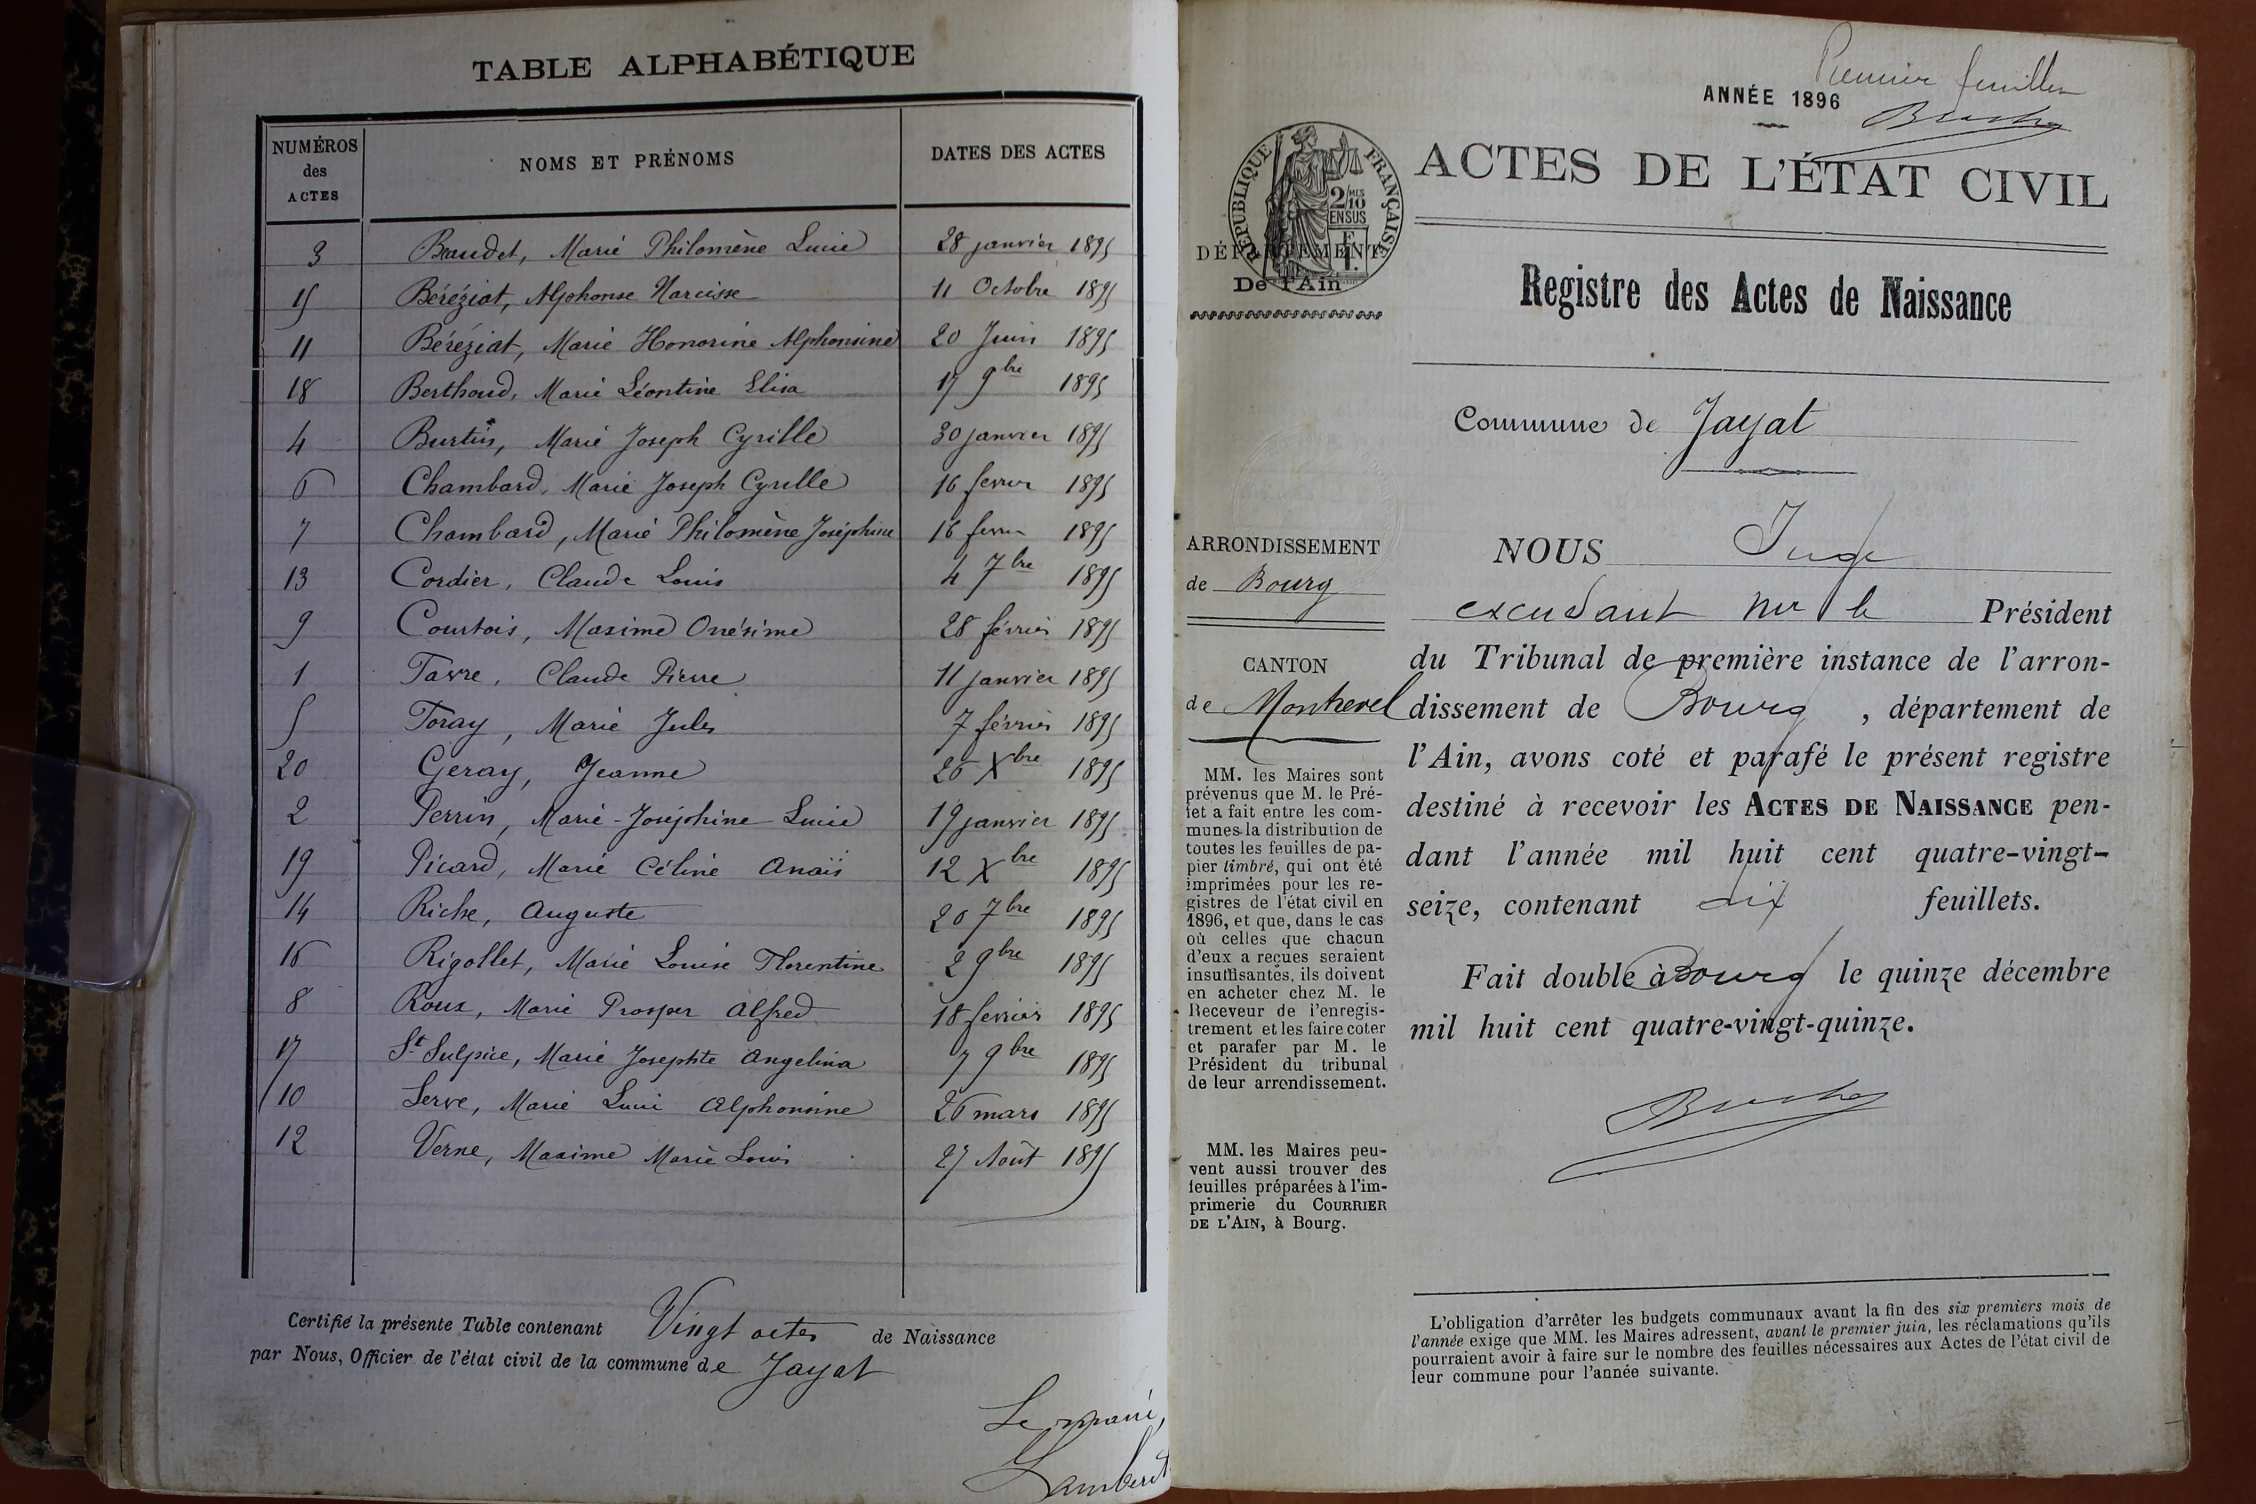 TABLE ALPHABÉTIQUE
NUMÉROS des ACTES NOMS ET PRÉNOMS DATES DES ACTES
3 Baudet, Marie Philomène Lucie 28 janvier 1895
15 Béréziat, Alphonse Narcisse 11 Octobre 1895
11 Béréziat, Marie Honorine Alphonsine 20 Juin 1895
18 Berthoud, Marie Léontine Elisa 17 9bre 1895
4 Burtin, Marie Joseph Cyrille 30 janvier 1895
6 Chambard, Marie Joseph Cyrille 16 fevrier 1895
7 Chambard, Marie Philomène Joséphine 16 fevrier 1895
13 Cordier, Claude Louis 4 7bre 1895
9 Courtois, Maxime Onésime 28 février 1895
1 Favre, Claude Pierre 11 janvier 1895
5 Foray, Marie Jules 7 février 1895
20 Geray, Jeanne 26 Xbre 1895
2 Perrin, Marie-Joséphine Lucie 19 janvier 1895
19 Picard, Marie Céline Anaïs 12 Xbre 1895
14 Riche, Auguste 20 7bre 1895
16 Rigollet, Marie Louise Florentine 2 9bre 1895
8 Roux, Marie Prosper Alfred 18 février 1895
17 St Sulpice, Marie Josephte Angelina 7 9bre 1895
10 Serve, Marie Lucie Alphonsine 26 mars 1895
12 Verne, Maxime Marie Louis 27 Août 1895
Certifié la présente Table contenant Vingt actes de Naissance
par Nous, Officier de l'état civil de la commune de Jayat
Le maire,
Lambert
Premier feuillet
ANNÉE 1896
RÉPUBLIQUE FRANÇAISE
2/10 MES
EN SUS
ACTES DE L'ÉTAT CIVIL
DÉPARTEMENT
De l'Ain
Registre des Actes de Naissance
Commune de Jayat
ARRONDISSEMENT
de Bourg
CANTON
de Montrevel
MM. les Maires sont
prévenus que M. le Pré-
fet a fait entre les com-
munes la distribution de
toutes les feuilles de pa-
pier timbré, qui ont été
imprimées pour les re-
gistres de l'état civil en
1896, et que, dans le cas
où celles que chacun
d'eux a reçues seraient
insuffisantes, ils doivent
en acheter chez M. le
Receveur de l'enregis-
trement et les faire coter
et parafer par M. le
Président du tribunal
de leur arrondissement.
MM. les Maires peu-
vent aussi trouver des
feuilles préparées à l'im-
primerie du COURRIER
DE L'AIN, à Bourg.
NOUS Juge
le Président
du Tribunal de première instance de l'arron-
dissement de Bourg, département de
l'Ain, avons coté et parafé le présent registre
destiné à recevoir les ACTES DE NAISSANCE pen-
dant l'année mil huit cent quatre-vingt-
seize, contenant dix feuillets.
Fait double à Bourg le quinze décembre
mil huit cent quatre-vingt-quinze.
L'obligation d'arrêter les budgets communaux avant la fin des six premiers mois de
l'année exige que MM. les Maires adressent, avant le premier juin, les réclamations qu'ils
pourraient avoir à faire sur le nombre des feuilles nécessaires aux Actes de l'état civil de
leur commune pour l'année suivante.